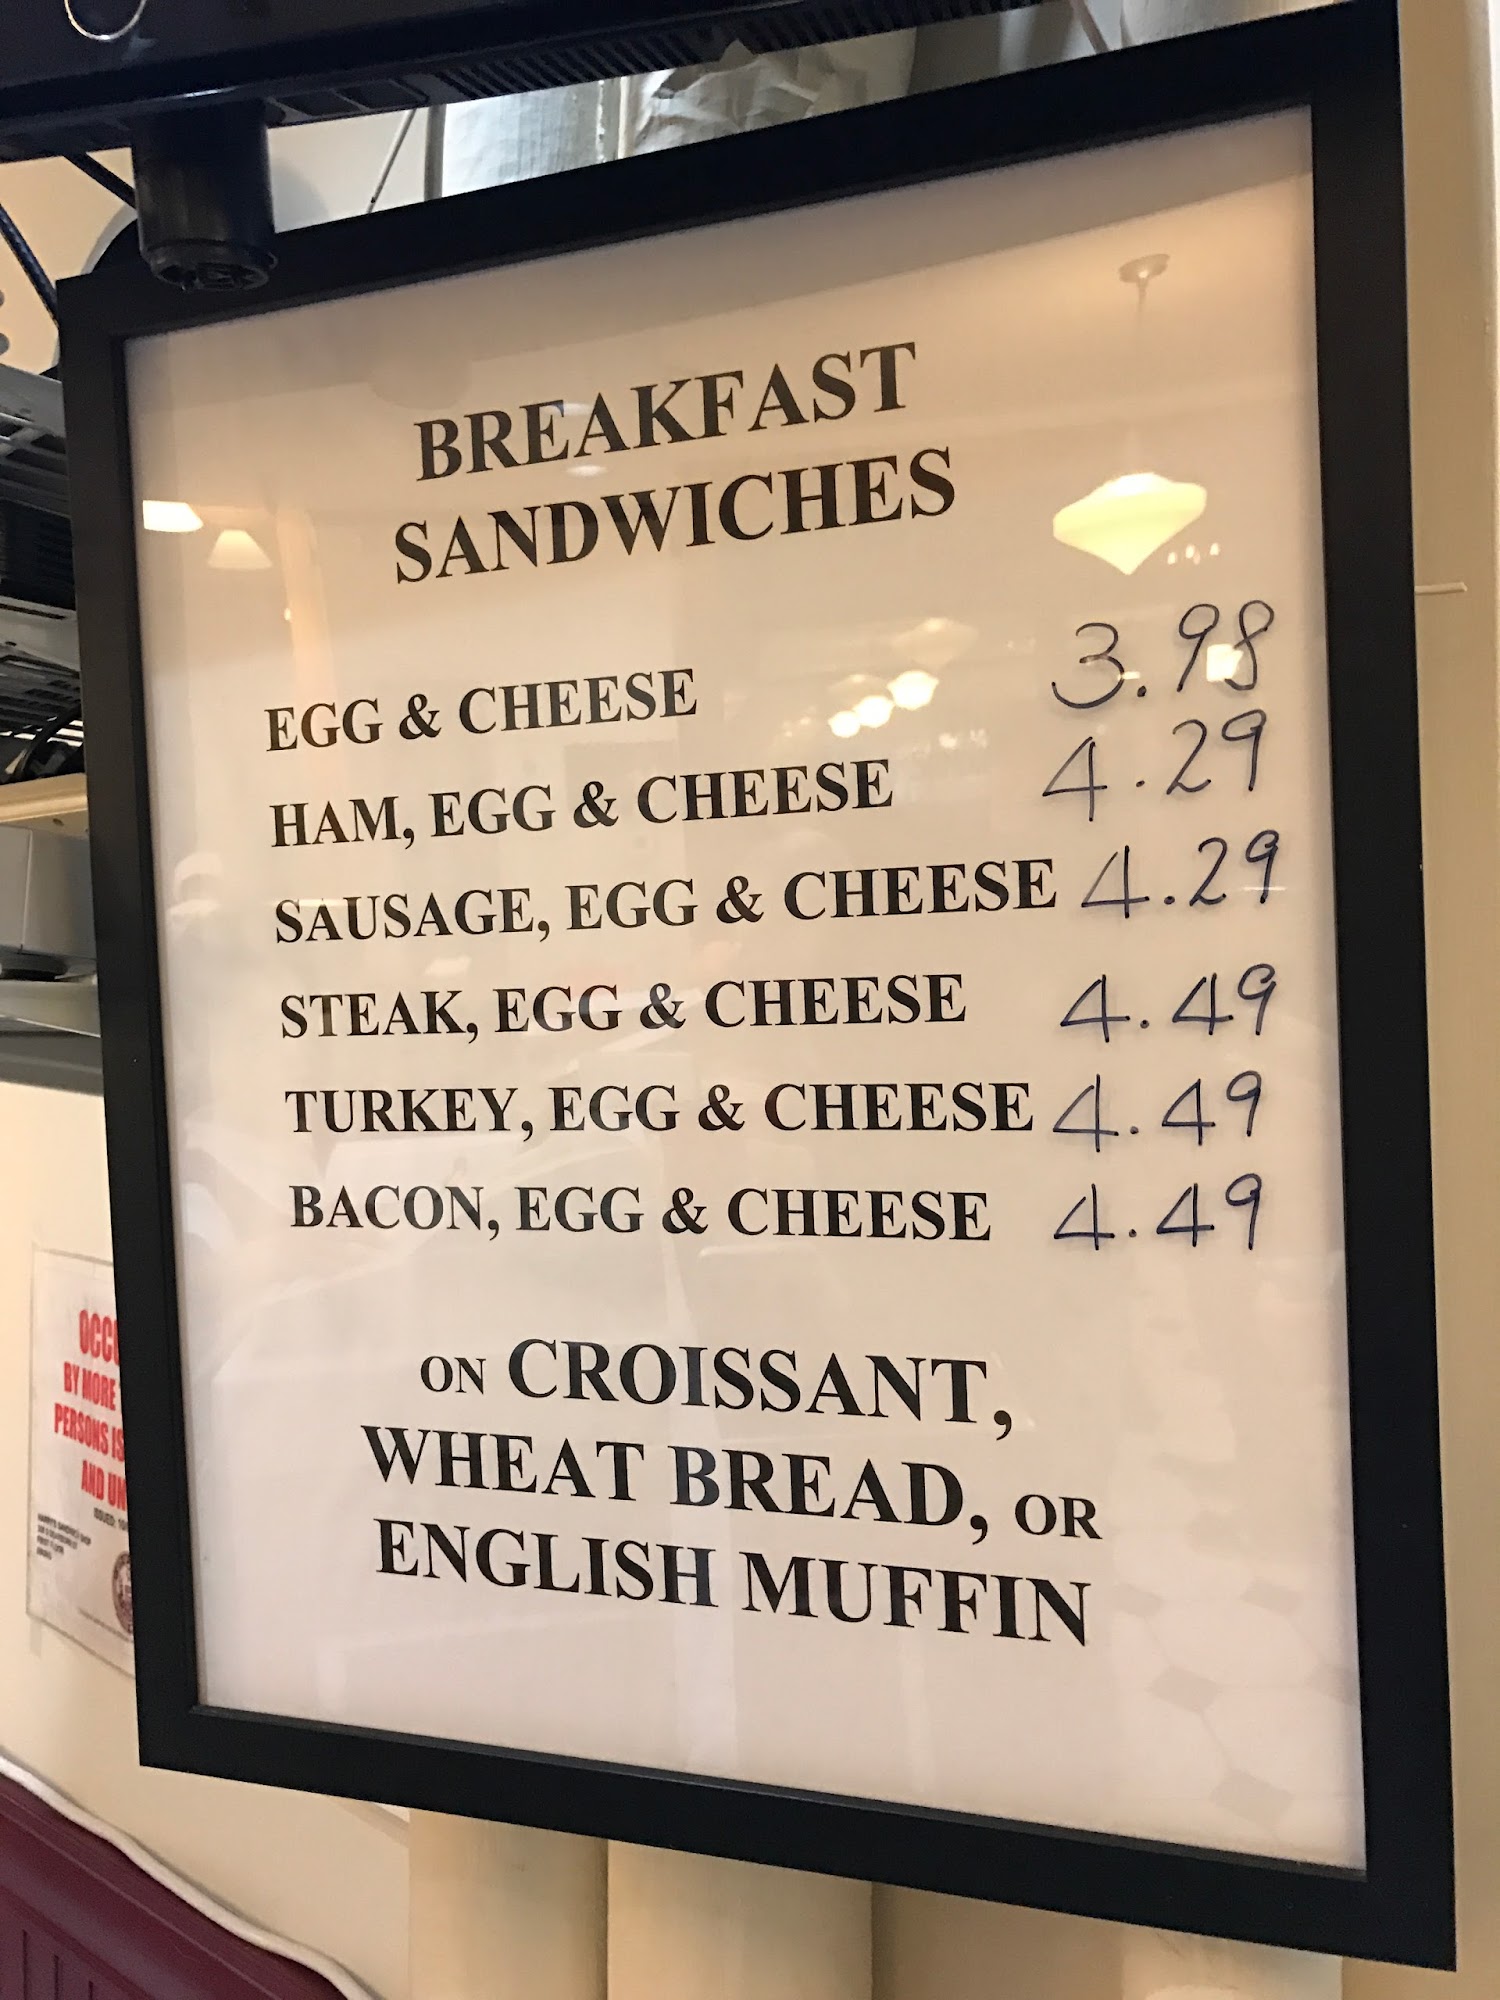 BREAKFAST
SANDWICHES
EGG & CHEESE 3.98
HAM, EGG & CHEESE 4.29
SAUSAGE, EGG & CHEESE 4.29
STEAK, EGG & CHEESE 4.49
TURKEY, EGG & CHEESE 4.49
BACON, EGG & CHEESE 4.49
ON CROISSANT,
WHEAT BREAD, OR
ENGLISH MUFFIN
OCCU
BY MORE
PERSONS IS
AND UN
ISSUED: